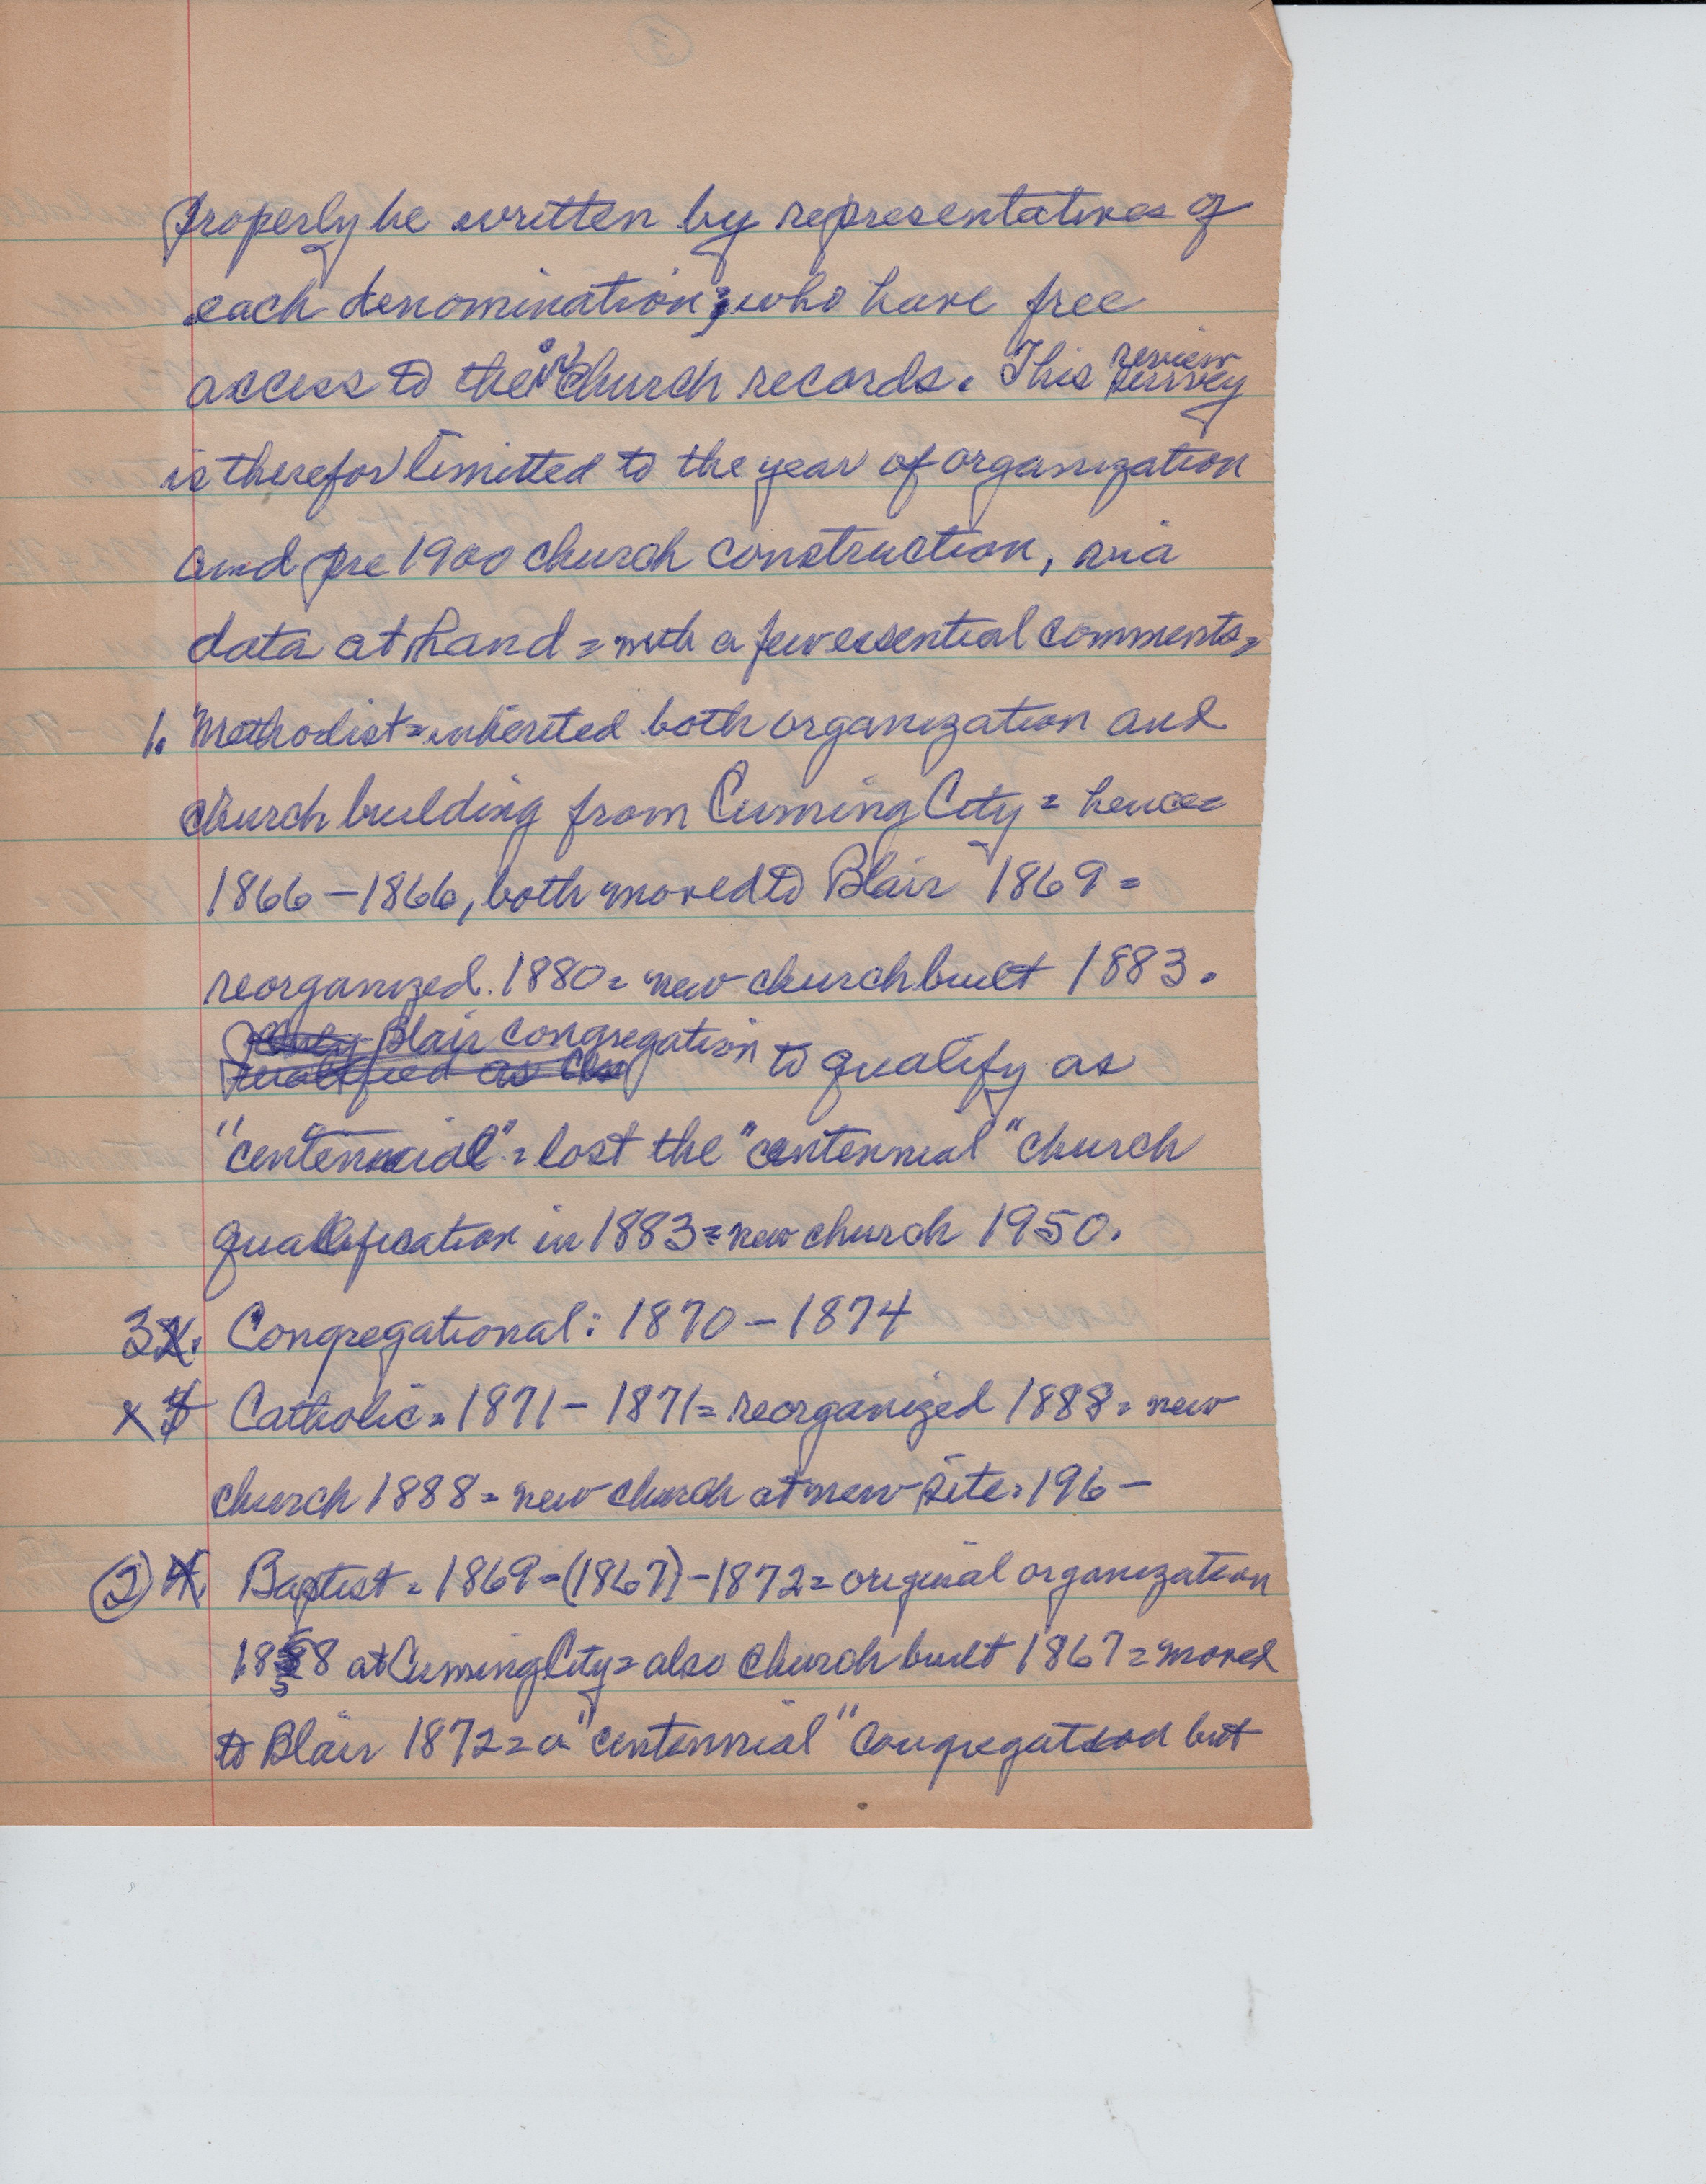 properly be written by representatives of
each denomination, who have free
access to their church records. This review survey
is therefor limitted to the year of organization
and pre 1900 church construction, via
data at hand = with a few essential comments =
1. Methodist = inherited both organization and
church building from Cuming City = hence =
1866 - 1866, both moved to Blair 1869 =
reorganized. 1880 = new church built 1883.
Only Blair congregation to qualify as
qualified as Cen
"centennial" = lost the "centennial" church
qualification in 1883 = new church 1950.
3 2. Congregational: 1870 - 1874
x 3 Catholic = 1871 - 1871 = reorganized 1888 = new
church 1888 = new church at new site = 196-
(2) 4. Baptist = 1869 = (1867) - 1872 = original organization
1858 at Cuming City = also church built 1867 = moved
to Blair 1872 = a "centennial" congregation but